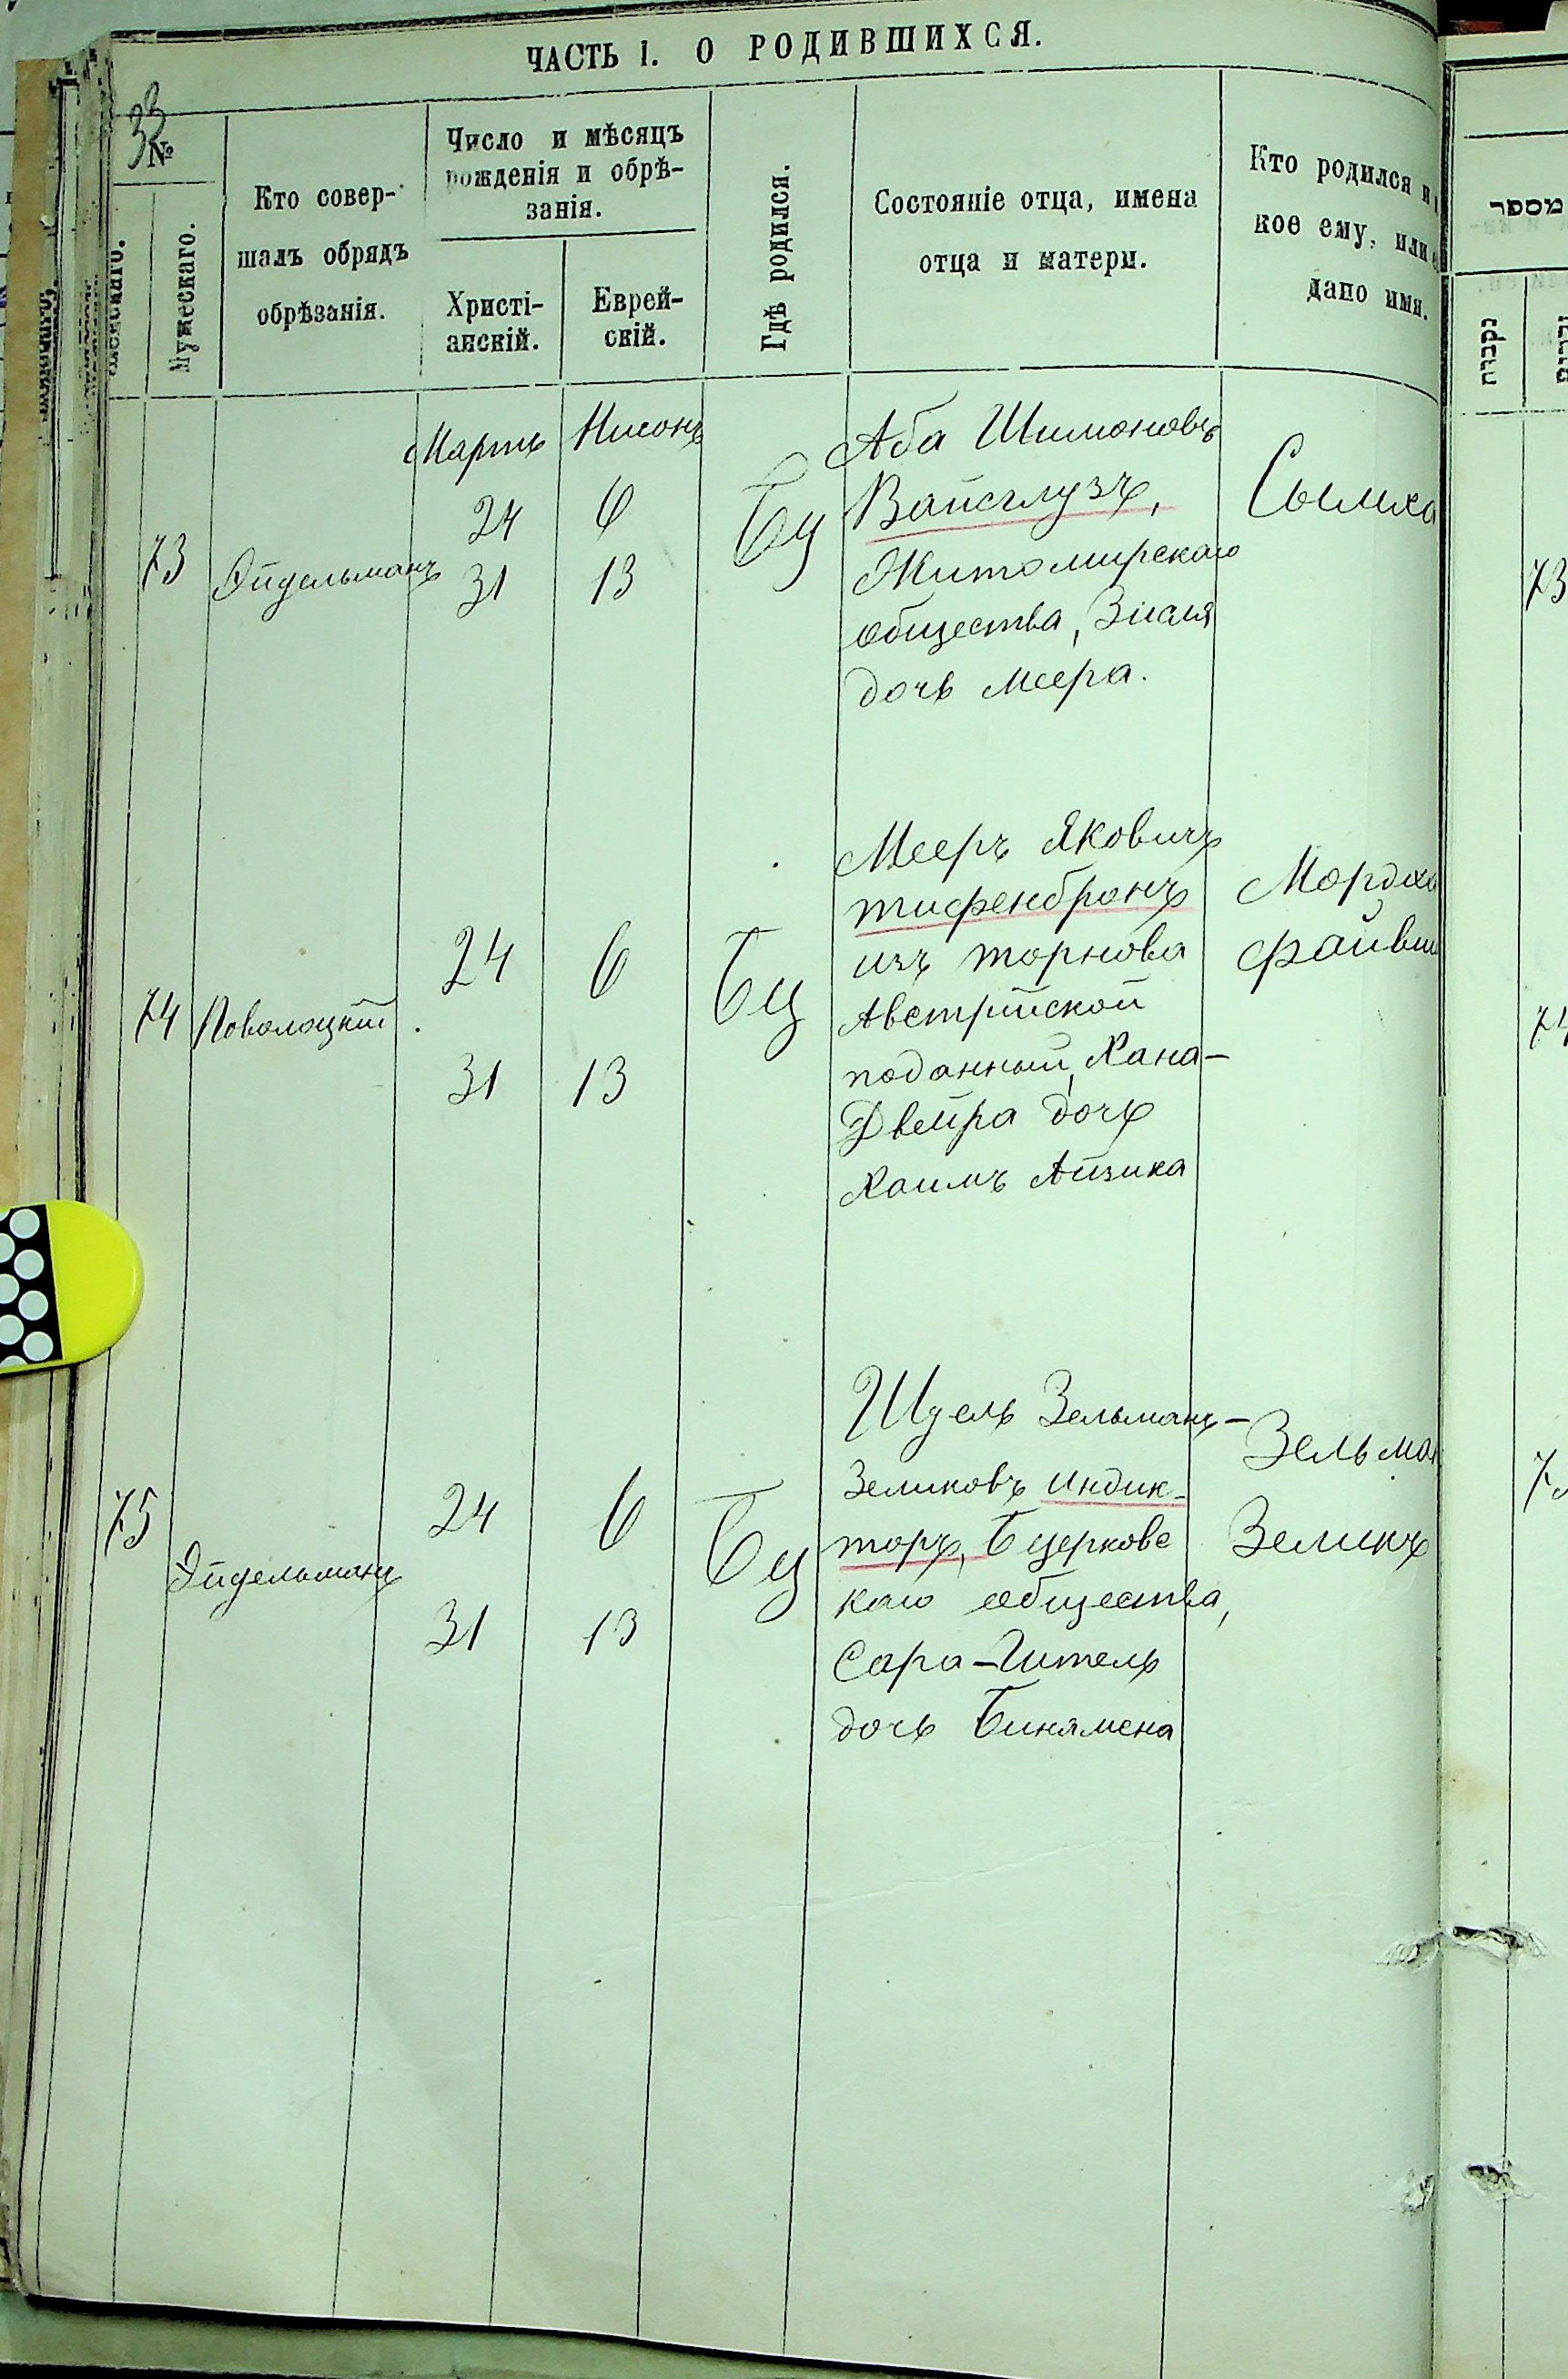 ЧАСТЬ I. О РОДИВШИХСЯ.
33
№
Женскаго.
Мужескаго.
Кто совер-
шалъ обрядъ
обрѣзанія.
Число и мѣсяцъ
рожденія и обрѣ-
занія.
Христі-
анскій.
Еврей-
скій.
Гдѣ родился.
Состояніе отца, имена
отца и матери.
Кто родился и
кое ему, или
дано имя.
מספר
נקבות
73
Эйдельманъ
Мартъ
24
31
Нисонъ
6
13
Бц
Аба Шимоновъ
Вайсглузъ,
Житомирскаго
общества, Зисля
дочь Меера.
Сымха
73
74
Поволоцкій
24
31
6
13
Бц
Мееръ Яковичъ
тифенбронъ
изъ торнова
Австрійской
поданный, Хана-
Двейра дочь
Хаимъ Айзика
Мордко
файвиш
74
75
Эйдельманъ
24
31
6
13
Бц
Идель Зельманъ-
Зеликовъ индик-
торъ, Бцерковс
каго общества,
Сара-Гитель
дочь Бинямена
Зельман
Зеликъ
7